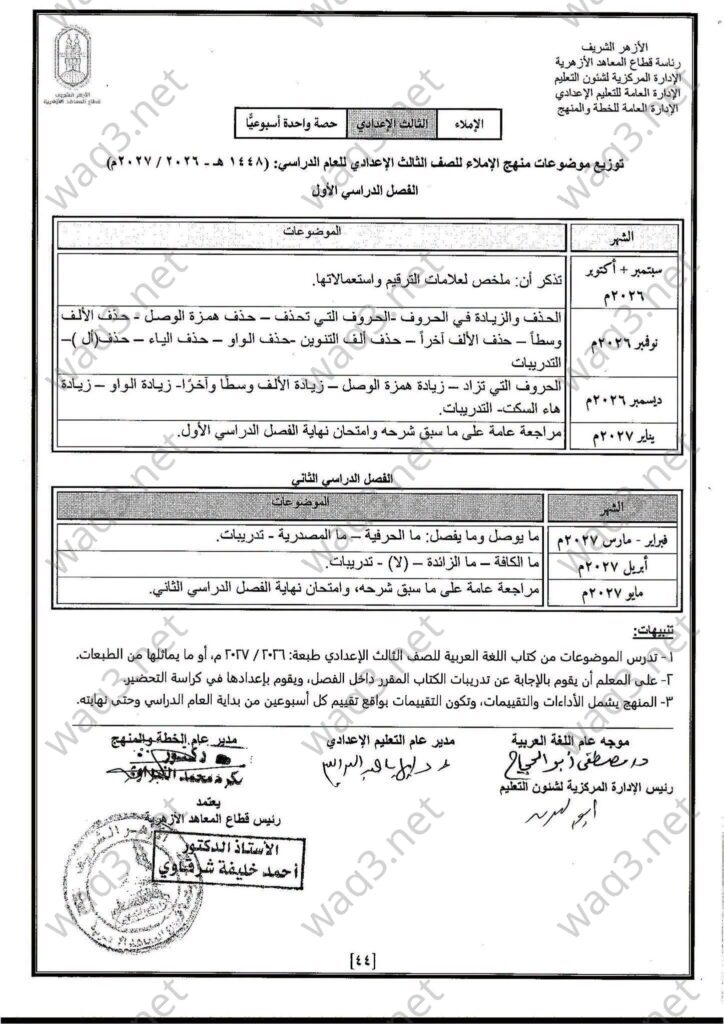 الأزهر الشريف
رئاسة قطاع المعاهد الأزهرية
الإدارة المركزية لشئون التعليم
الإدارة العامة للتعليم الإعدادي
الإدارة العامة للخطة والمنهج
الأزهر الشريف
قطاع المعاهد الأزهرية
الإملاء
الثالث الإعدادي
حصة واحدة أسبوعيًّا
توزيع موضوعات منهج الإملاء للصف الثالث الإعدادي للعام الدراسي: (١٤٤٨ هـ - ٢٠٢٦ / ٢٠٢٧م)
الفصل الدراسي الأول
الشهر
الموضوعات
سبتمبر + أكتوبر
٢٠٢٦م
تذكر أن: ملخص لعلامات الترقيم واستعمالاتها.
نوفمبر ٢٠٢٦م
الحذف والزيادة في الحروف -الحروف التي تحذف – حذف همزة الوصل - حذف الألف
وسطاً – حذف الألف آخراً – حذف ألف التنوين -حذف الواو – حذف الياء – حذف(أل )–
التدريبات
ديسمبر ٢٠٢٦م
الحروف التي تزاد – زيادة همزة الوصل – زيادة الألف وسطًا وآخرًا- زيادة الواو – زيادة
هاء السكت- التدريبات.
يناير ٢٠٢٧م
مراجعة عامة على ما سبق شرحه وامتحان نهاية الفصل الدراسي الأول.
الفصل الدراسي الثاني
الشهر
الموضوعات
فبراير - مارس ٢٠٢٧م
ما يوصل وما يفصل: ما الحرفية – ما المصدرية - تدريبات.
أبريل ٢٠٢٧م
ما الكافة – ما الزائدة – (لا) - تدريبات.
مايو ٢٠٢٧م
مراجعة عامة على ما سبق شرحه، وامتحان نهاية الفصل الدراسي الثاني.
تنبيهات:
١- تدرس الموضوعات من كتاب اللغة العربية للصف الثالث الإعدادي طبعة: ٢٠٢٦/ ٢٠٢٧ م، أو ما يماثلها من الطبعات.
٢- على المعلم أن يقوم بالإجابة عن تدريبات الكتاب المقرر داخل الفصل، ويقوم بإعدادها في كراسة التحضير.
٣- المنهج يشمل الأداءات والتقييمات، وتكون التقييمات بواقع تقييم كل أسبوعين من بداية العام الدراسي وحتى نهايته.
موجه عام اللغة العربية
مدير عام التعليم الإعدادي
مدير عام الخطة والمنهج
د. مصطفى أبو الحجاج
دكتور
رئيس الإدارة المركزية لشئون التعليم
يعتمد
رئيس قطاع المعاهد الأزهرية
الأستاذ الدكتور
أحمد خليفة شرقاوي
الأزهر الشريف
[٤٤]
waq3.net